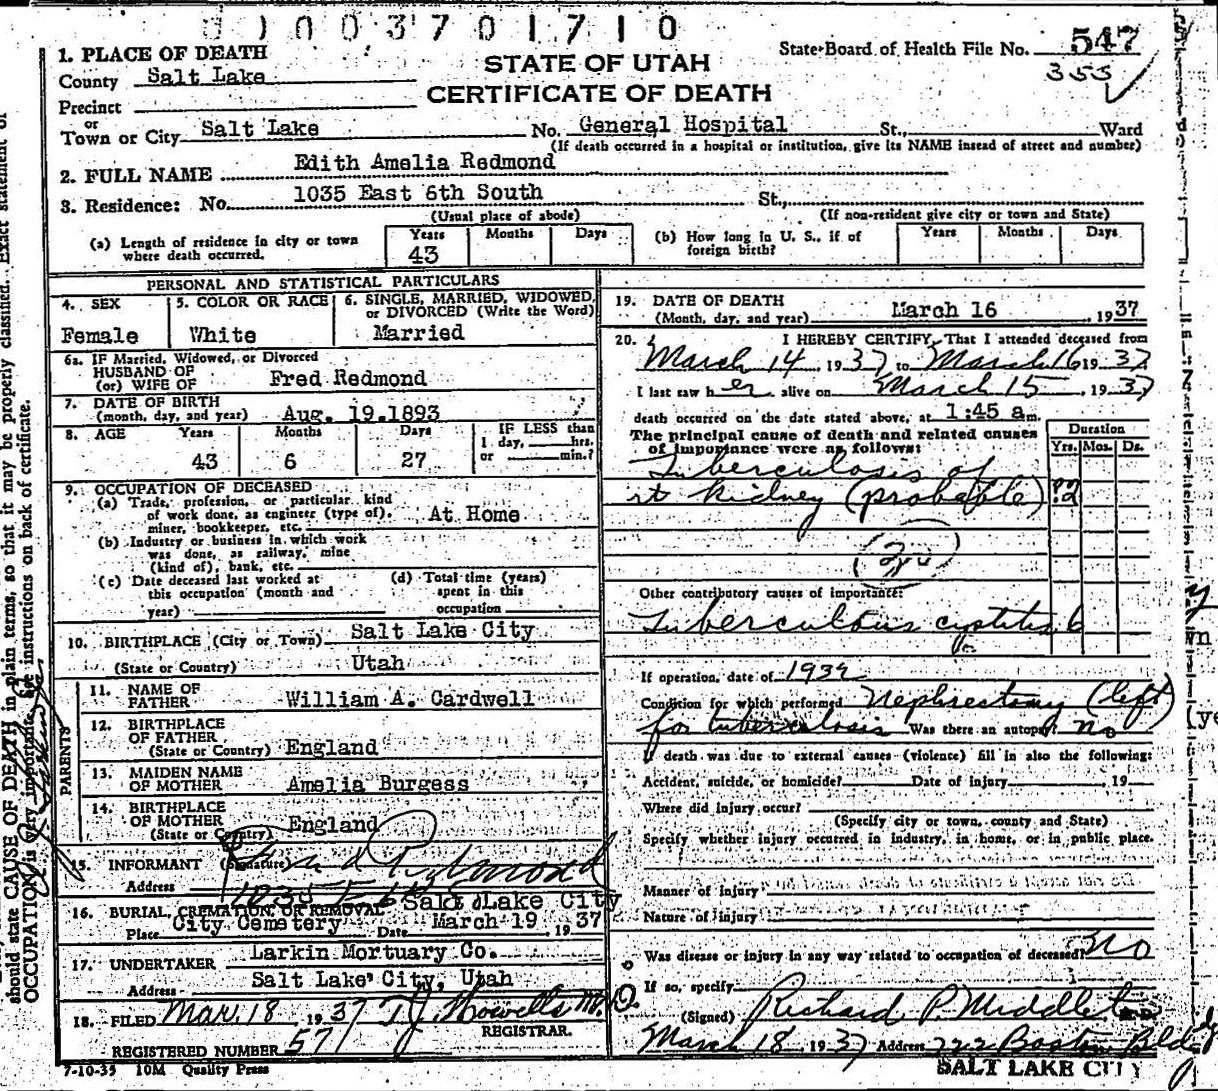 1003701710
1. PLACE OF DEATH
County Salt Lake
Precinct
or
Town or City Salt Lake No. General Hospital St., Ward
(If death occurred in a hospital or institution, give its NAME insead of street and number)
STATE OF UTAH
CERTIFICATE OF DEATH
State Board of Health File No. 547
355
2. FULL NAME Edith Amelia Redmond
3. Residence: No. 1035 East 6th South St.,
(Usual place of abode) (If non-resident give city or town and State)
(a) Length of residence in city or town where death occurred. Years 43 Months Days
(b) How long in U. S., if of foreign birth? Years Months Days
PERSONAL AND STATISTICAL PARTICULARS
4. SEX Female
5. COLOR OR RACE White
6. SINGLE, MARRIED, WIDOWED, or DIVORCED (Write the Word) Married
6a. IF Married, Widowed, or Divorced
HUSBAND OF
(or) WIFE OF Fred Redmond
7. DATE OF BIRTH
(month, day, and year) Aug. 19.1893
8. AGE Years 43 Months 6 Days 27 IF LESS than 1 day, hrs. or min.?
9. OCCUPATION OF DECEASED
(a) Trade, profession, or particular kind
of work done, as engineer (type of). At Home
miner, bookkeeper, etc.
(b) Industry or business in which work
was done, as railway, mine
(kind of), bank, etc.
(c) Date deceased last worked at this occupation (month and year)
(d) Total time (years) spent in this occupation
10. BIRTHPLACE (City or Town) Salt Lake City
(State or Country) Utah
PARENTS
11. NAME OF FATHER William A. Cardwell
12. BIRTHPLACE OF FATHER
(State or Country) England
13. MAIDEN NAME OF MOTHER Amelia Burgess
14. BIRTHPLACE OF MOTHER
(State or Country) England
15. INFORMANT (Signature) Fred Redmond
Address 1035 E 6th S
Salt Lake City
16. BURIAL, CREMATION, OR REMOVAL
Place City Cemetery Date March 19, 1937
17. UNDERTAKER Larkin Mortuary Co.
Address Salt Lake City, Utah
18. FILED Mar. 18 1937 T. J. Howells M.D.
REGISTRAR.
REGISTERED NUMBER 577
7-10-35 10M Quality Press
19. DATE OF DEATH
(Month, day, and year) March 16, 1937
20. I HEREBY CERTIFY, That I attended deceased from
March 14, 1937 to March 16 1937.
I last saw her alive on March 15, 1937
death occurred on the date stated above, at 1:45 am.
The principal cause of death and related causes
of importance were as follows:
Duration
Yrs. Mos. Ds.
Tuberculosis of
rt kidney (probable) ?2
Other contributory causes of importance:
Tuberculous cystitis 6
If operation, date of 1934
Condition for which performed Nephrectomy (left)
for tuberculosis Was there an autopsy? no
If death was due to external causes (violence) fill in also the following:
Accident, suicide, or homicide? Date of injury 19
Where did injury occur?
(Specify city or town, county and State)
Specify whether injury occurred in industry, in home, or in public place.
Manner of injury
Nature of injury
Was disease or injury in any way related to occupation of deceased? No
If so, specify
(Signed) Richard P. Middleton
March 18, 1937 Address 722 Boston Bldg
SALT LAKE CITY
should state CAUSE OF DEATH in plain terms, so that it may be properly classified. Exact statement of
OCCUPATION is very important. See instructions on back of certificate.